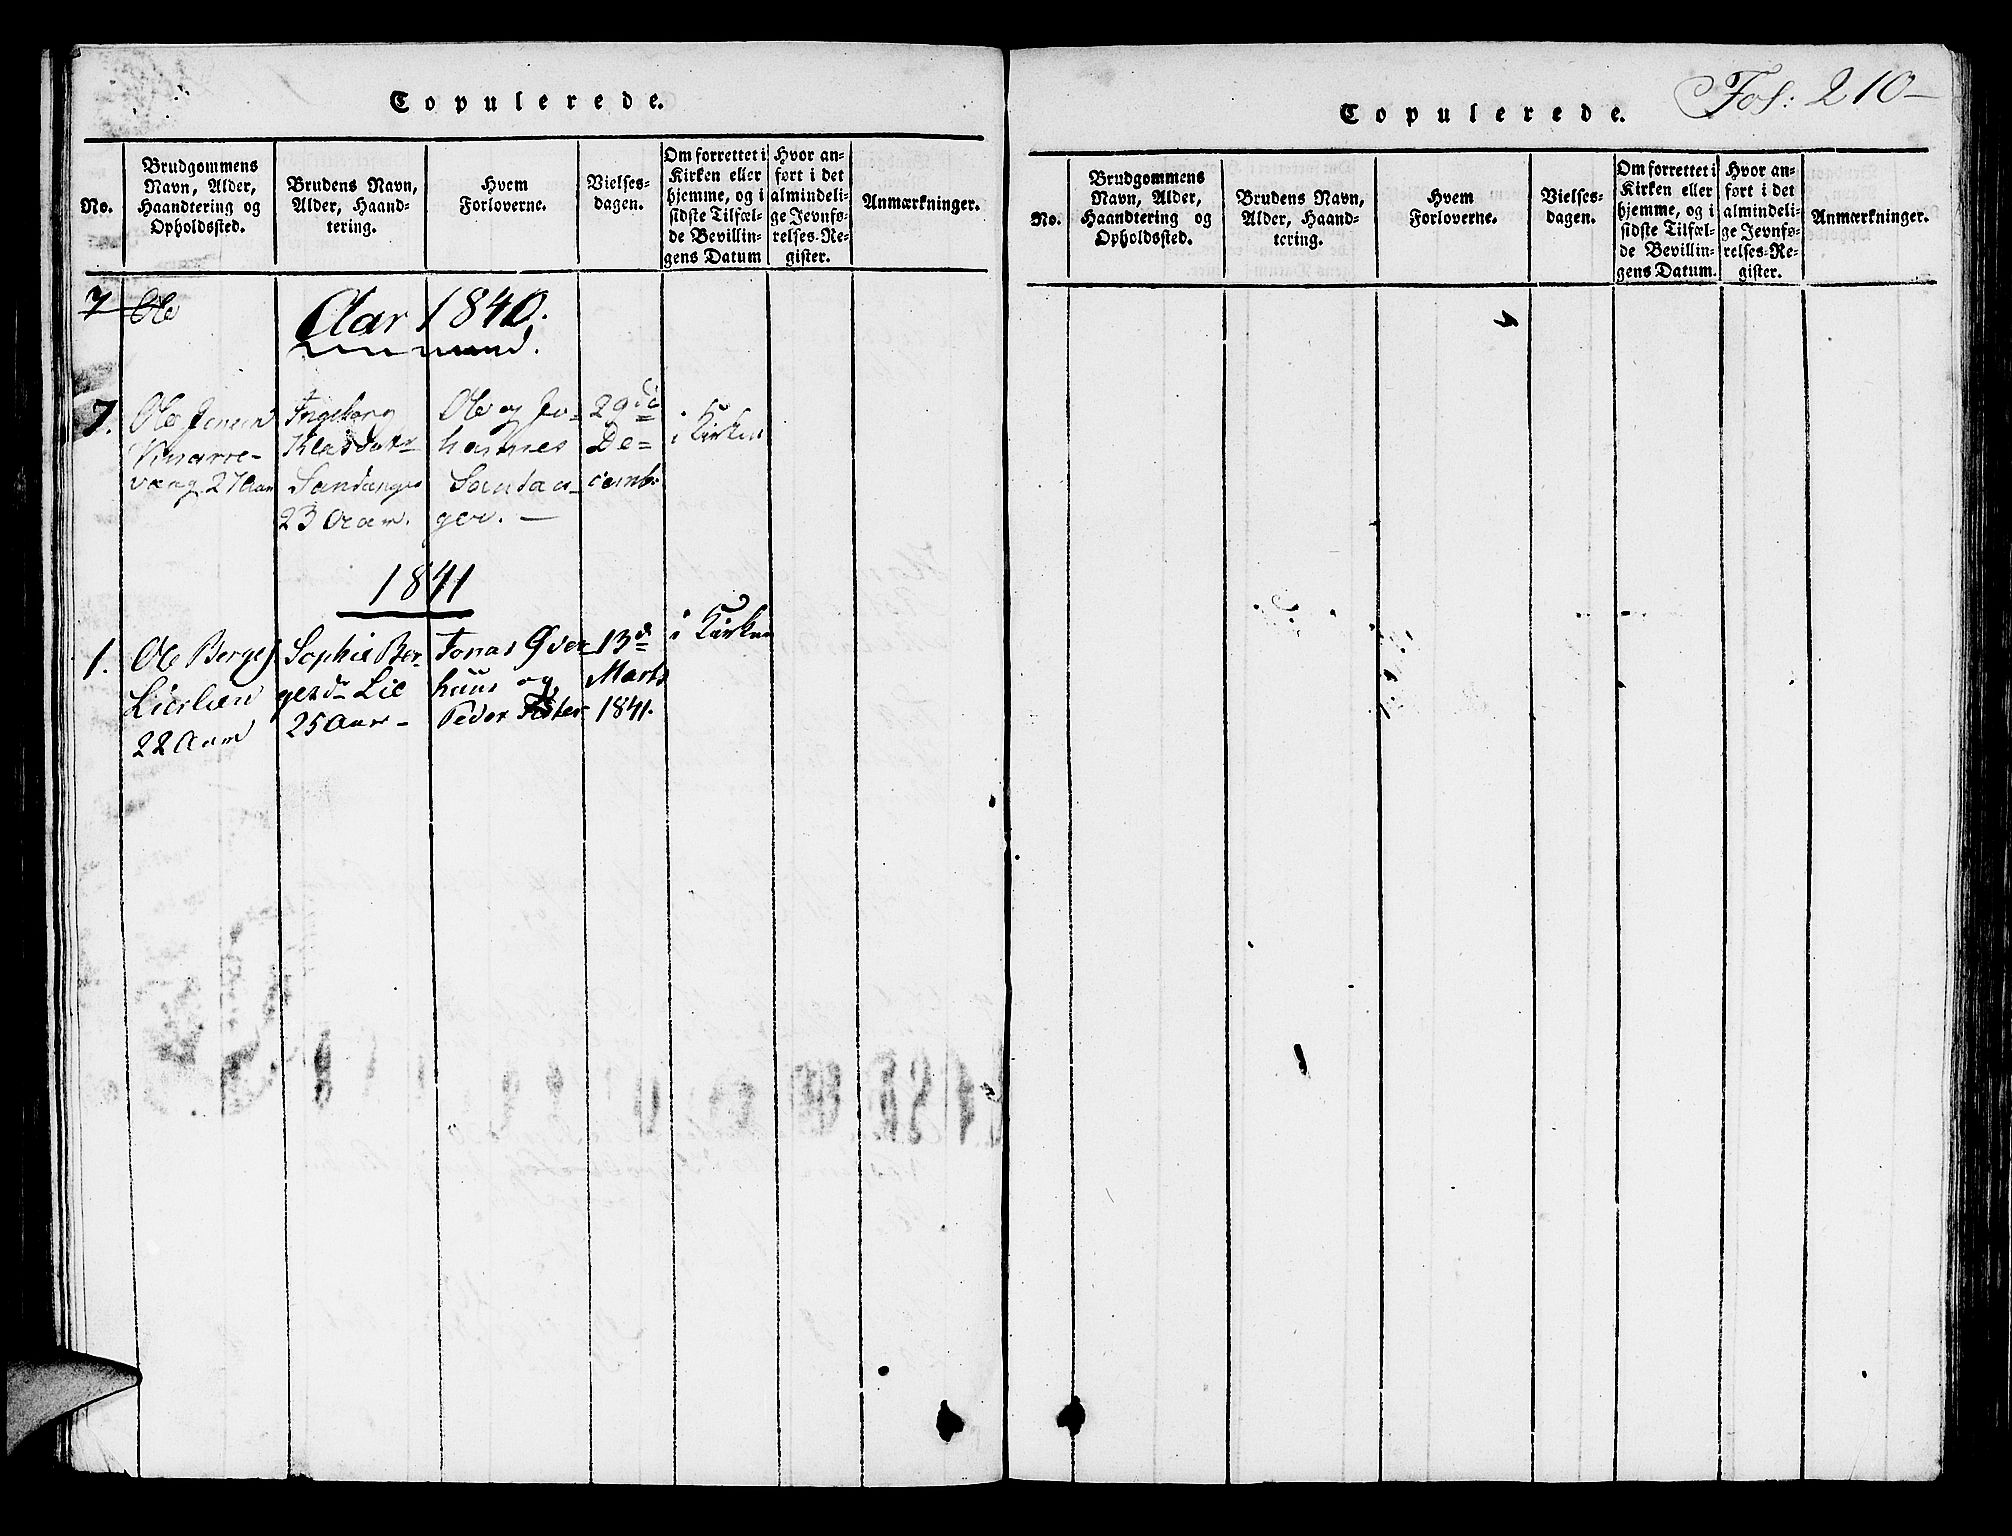 Copulerede.
No.
Brudgommens
Navn, Alder,
Haandtering og
Opholdssted.
Brudens Navn,
Alder, Haand-
tering.
Hvem
Forloverne.
Vielses-
dagen.
Om forrettet i
Kirken eller
hjemme, og i
sidste Tilfæl-
de Bevillin-
gens Datum
Hvor an-
ført i det
almindeli-
ge Jevnfø-
relses-Re-
gister.
Anmærkninger.
7 Ole
Aar 1840.
7.
Ole Jensen
vang 27 Aar
Ingeborg
23 Aar.
Ole og Jo-
hannes
ger. —
29de
De=
cemb.
i Kirken
1841
1.
Ole Berges
Lierlien
22 Aar
Sophie Ber-
gesdr Lie
25 Aar -
Jonas Øver-
huus og
Peder
13d
Marts
1841.
i Kirken
Fol: 210 -
Copulerede.
No.
Brudgommens
Navn, Alder,
Haandtering og
Opholdssted.
Brudens Navn,
Alder, Haand-
tering.
Hvem
Forloverne.
Vielses-
dagen.
Om forrettet i
Kirken eller
hjemme, og i
sidste Tilfæl-
de Bevillin-
gens Datum.
Hvor an-
ført i det
almindeli-
ge Jevnfø-
relses-Re-
gister.
Anmærkninger.